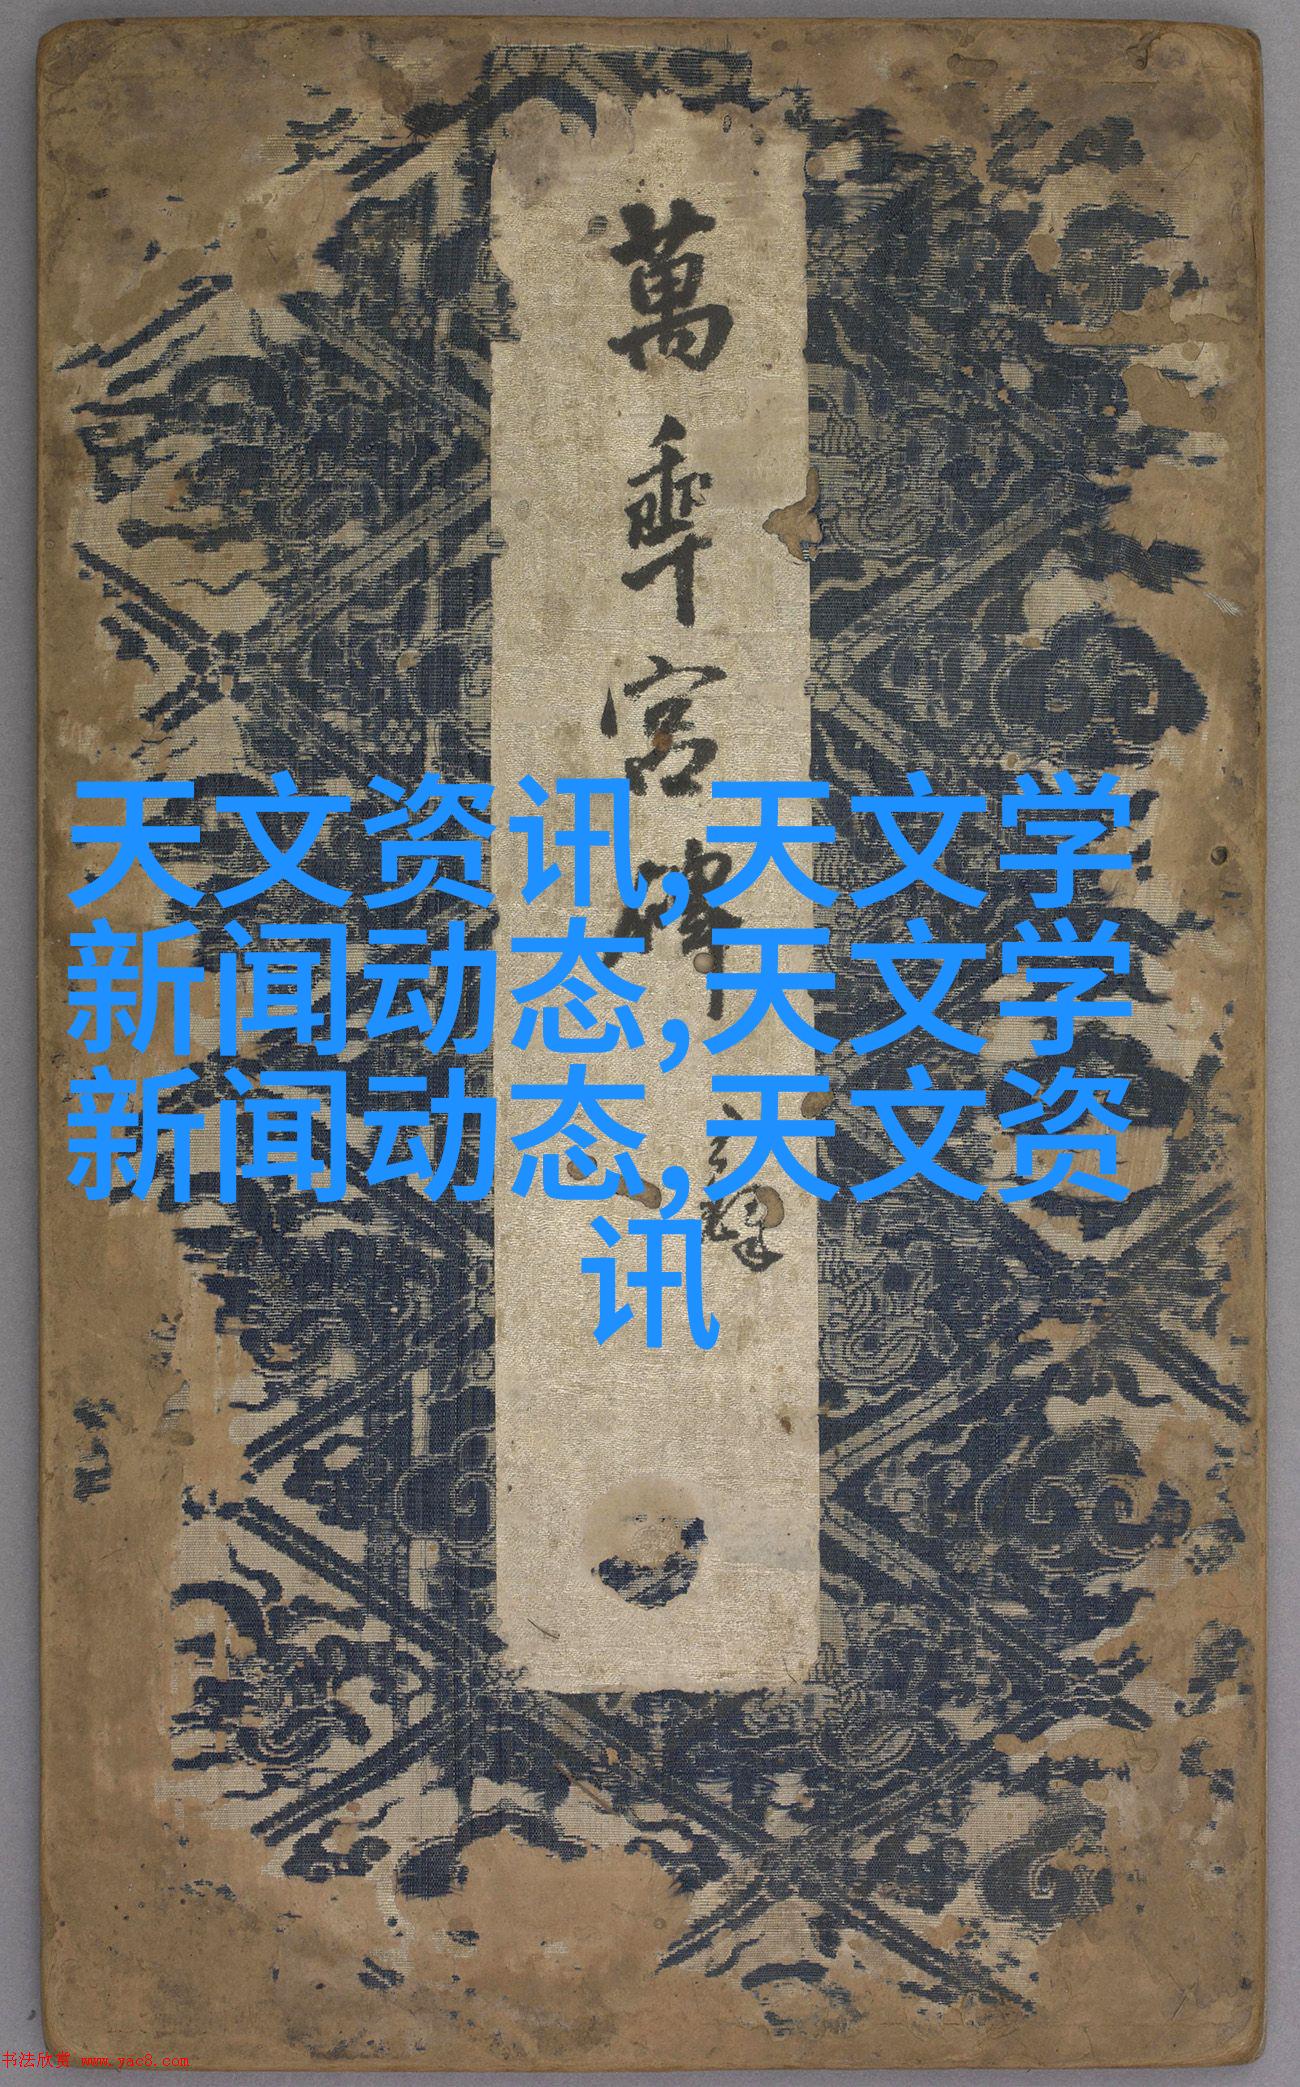 萬年宮碑
天文资讯,天文学
新闻动态,天文学
新闻动态,天文资
讯
书法欣赏 www.yac8.com